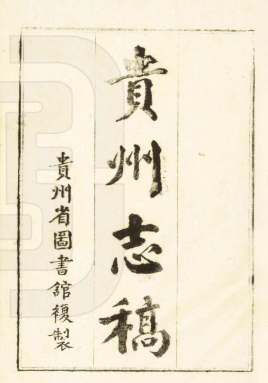 貴州志稿
貴州省圖書館複製